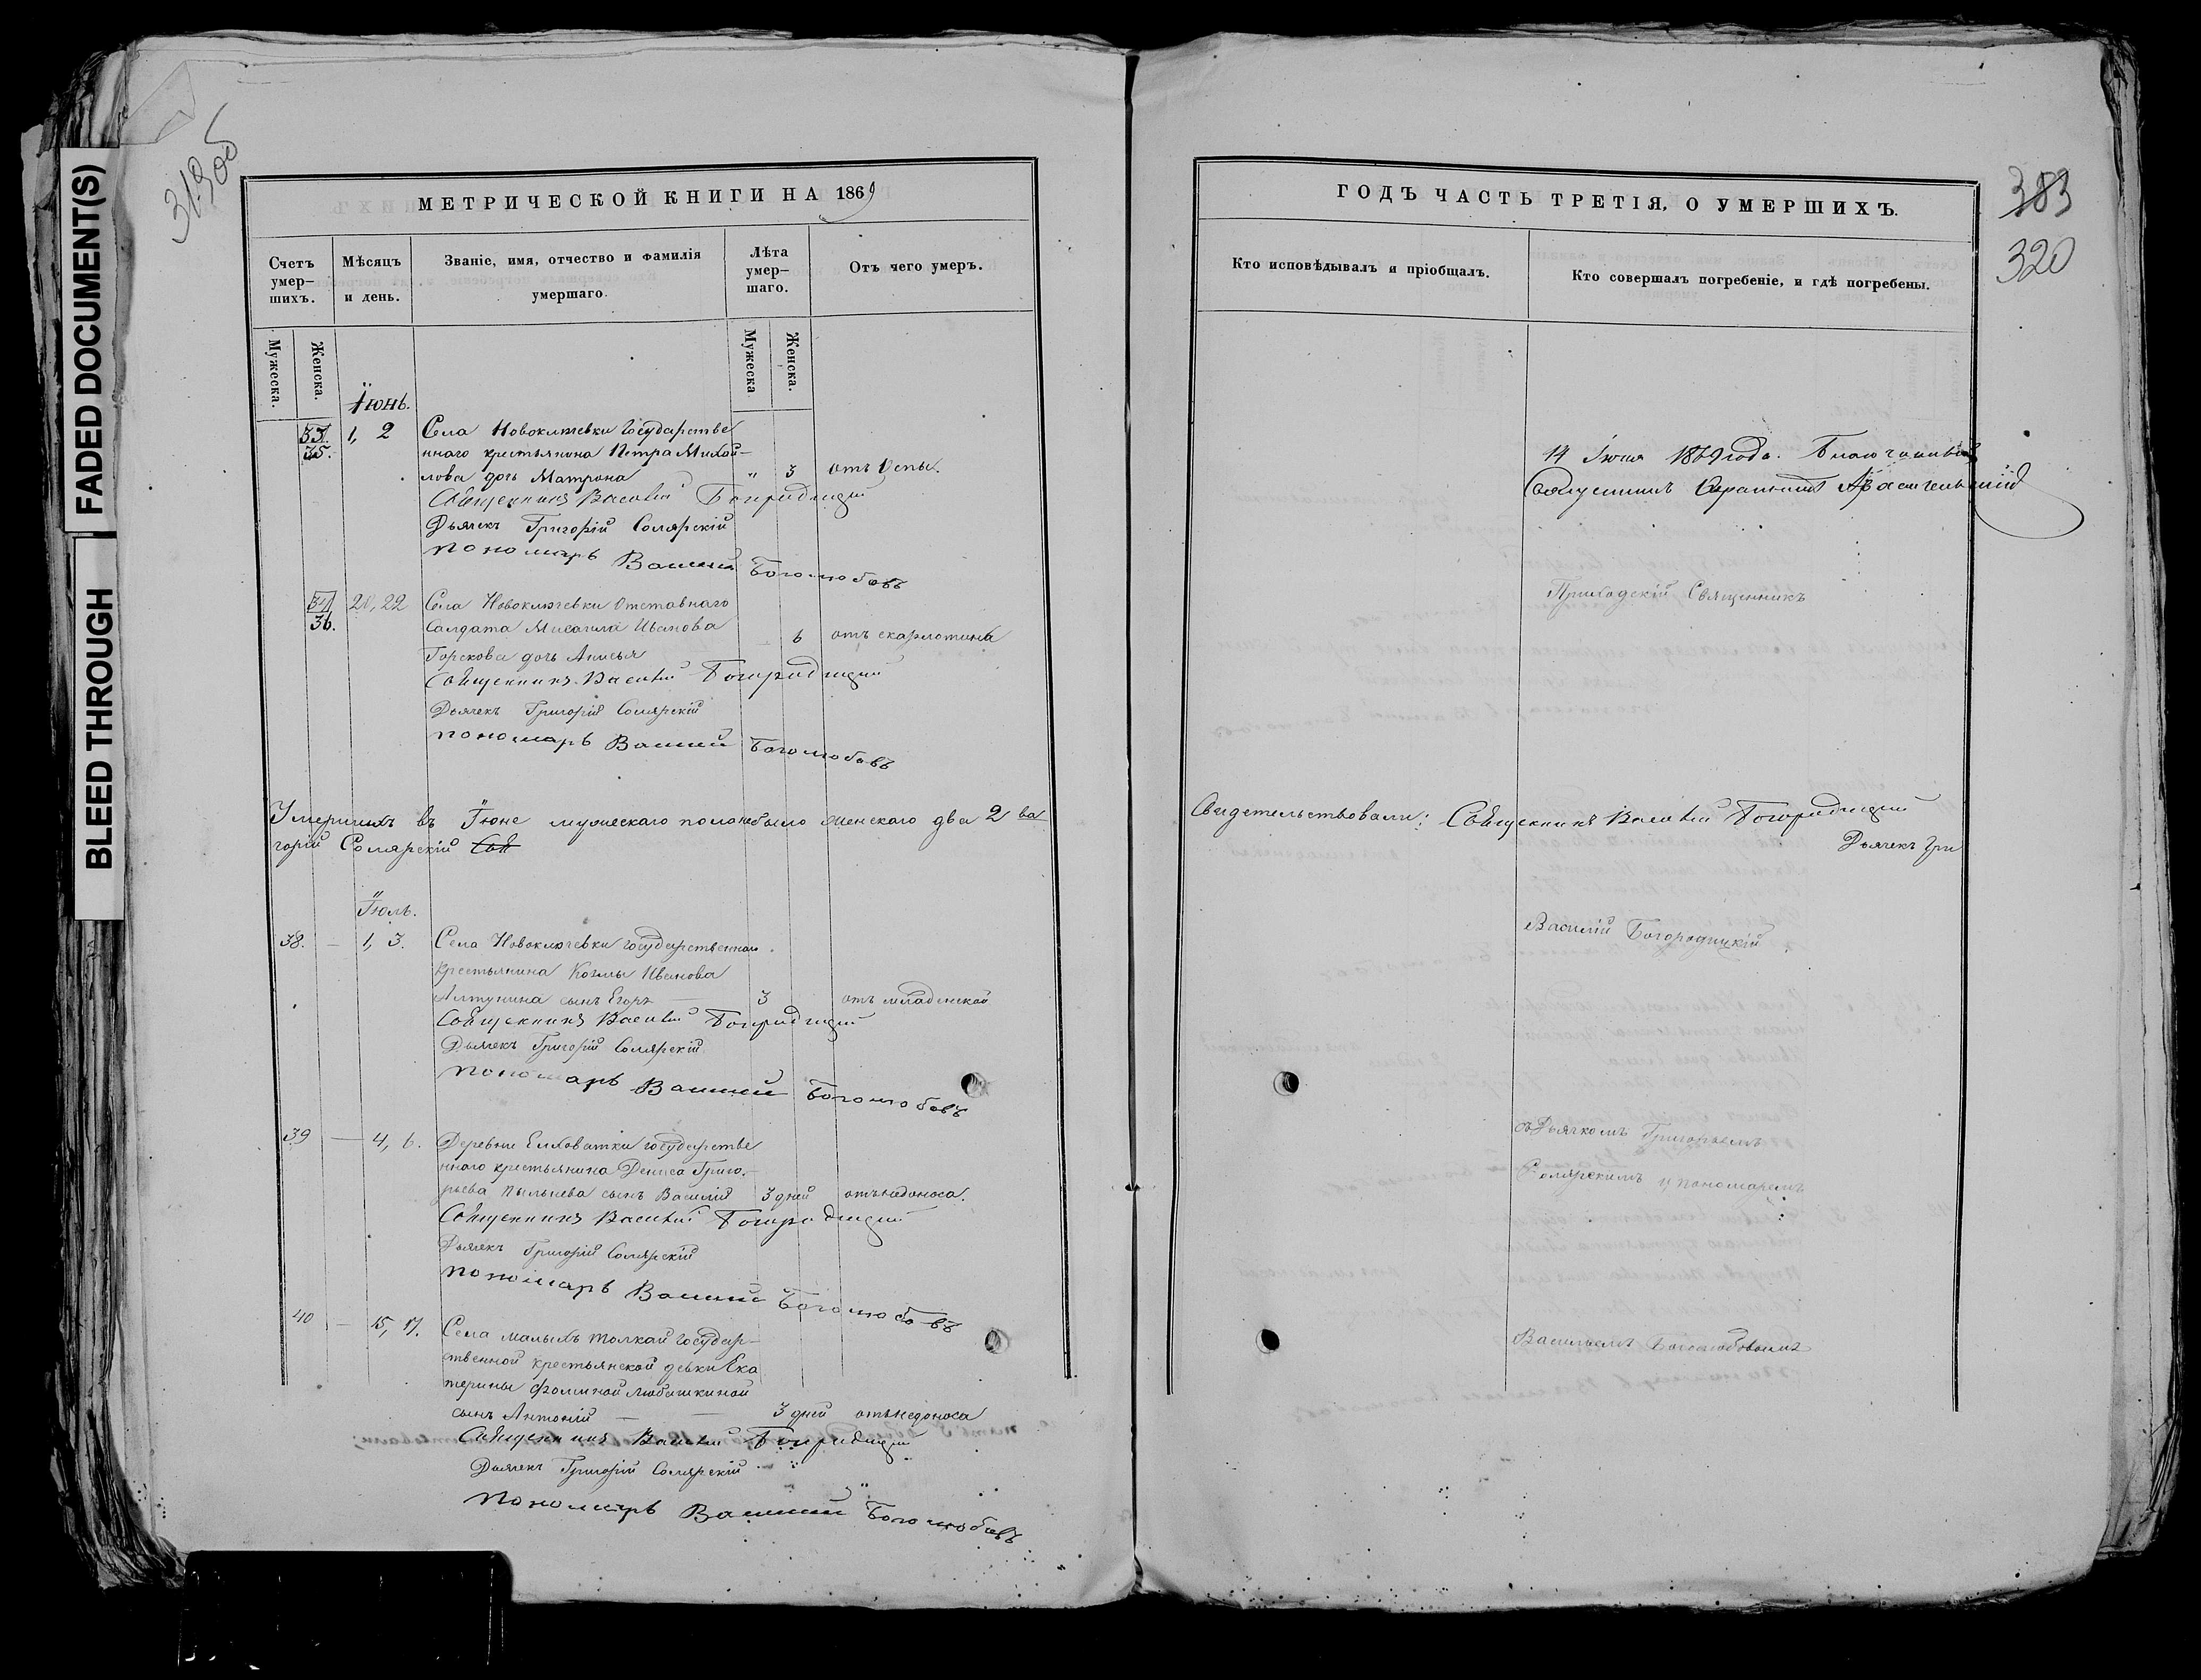 FADED DOCUMENT(S)
BLEED THROUGH
319об
МЕТРИЧЕСКОЙ КНИГИ НА 1869
Счетъ умер-шихъ.
Мѣсяцъ и день.
Званіе, имя, отчество и фамилія умершаго.
Лѣта умер-шаго.
Отъ чего умеръ.
Мужеска.
Женска.
Мужеска
Женска.
Іюнь.
33. 1, 2 Села Новоключевки Государстве
35. ннаго крестьянина Петра Михай-
лова дочь Матрона " 3 отъ Оспы.
Священникъ Василій Богородицкій
Дьячекъ Григорій Солярскій
Пономарь Василий Боголюбовъ
34 20, 22 Села Новоключевки Отставнаго
36. Солдата Михаила Иванова 6 отъ скарлотина
Горскова дочь Анисья
Священникъ Василій Богородицкій
Дьячекъ Григорій Солярскій
Пономарь Василий Боголюбовъ
Умершихъ въ Іюне мужескаго пола небыло женскаго два 2 ва
горій Солярскій
Іюль.
38. — 1, 3. Села Новоключевки государственнаго
крестьянина Козмы Иванова
Алтунина сынъ Егоръ — 3 отъ младенской
Священникъ Василій Богородицкій
Дьячекъ Григорій Солярскій
Пономарь Василий Боголюбовъ
39 — 4, 6. Деревни Елховатки государстве
ннаго крестьянина Дениса Григо-
рьева Пыльнева сынъ Василій 3 дней отънедоноса.
Священникъ Василій Богородицкій
Дьячекъ Григорій Солярскій
Пономарь Василий Боголюбовъ
40 — 15, 17. Села малыхъ Толкай государ-
ственной крестьянской девки Ека
терины Фоминой Любишкиной
сынъ Антоній — — 3 дней отънедоноса
Священникъ Василій Богородицкій
Дьячекъ Григорій Солярскій
Пономарь Василий Боголюбовъ
ГОДЪ ЧАСТЬ ТРЕТІЯ, О УМЕРШИХЪ.
383
320
Кто исповѣдывалъ и пріобщалъ.
Кто совершалъ погребеніе, и гдѣ погребены.
14 Іюня 1869 года. Благочинный
Священникъ
Приходскій Священникъ
Свидетельствовали: Священникъ Василій Богородицкій
Дьячекъ Гри
Василій Богородицкій
съ Дьячкомъ Григорьемъ
Солярскимъ и пономаремъ
Васильемъ Боголюбовымъ